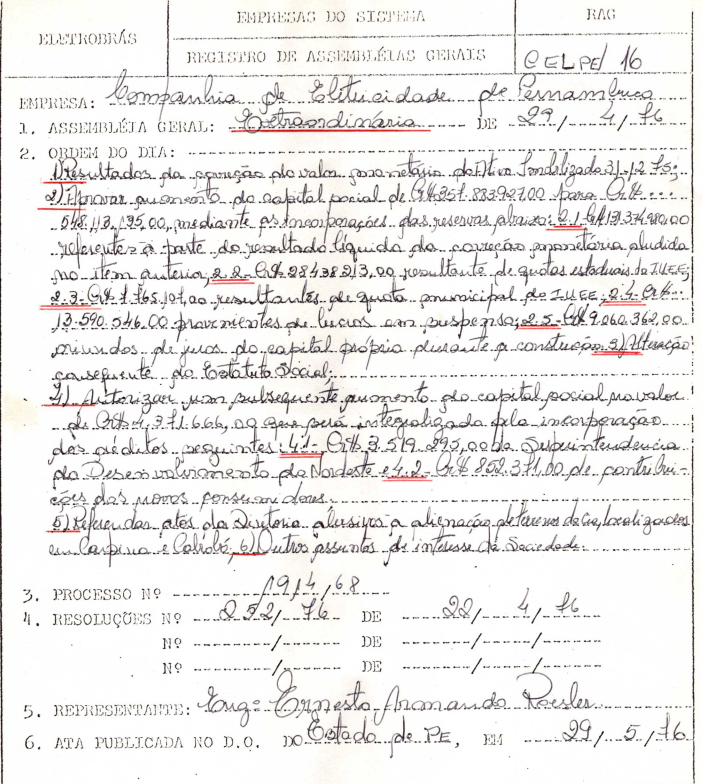 ELETROBRÁS
EMPRESAS DO SISTEMA
RAG
REGISTRO DE ASSEMBLÉIAS GERAIS
CELPE/ 16
EMPRESA: Companhia de Eletricidade de Pernambuco
1. ASSEMBLÉIA GERAL: Extraordinária DE 29/ 4/ 76
2. ORDEM DO DIA:
1) Resultados da correção do valor monetário do Ativo Imobilizado 31-12-75;
2) Aprovar aumento do capital social de Cr$ 357.883.927,00 para Cr$
548.113.195,00, mediante as incorporações das reservas abaixo: 2.1-
referentes à parte do resultado líquido da correção monetária aludida
no item anterior, 2.2- Cr$ 28.438.213,00 resultante de quotas estaduais do IUEE;
2.3- Cr$ 1.765.107,00 resultantes de quota municipal do IUEE, 2.4- Cr$
13.590.546,00 provenientes de lucros em suspenso; 2.5- Cr$ 9.060.362,00
oriundos de juros do capital próprio durante a construção. 3) Alteração
consequente do Estatuto Social.
4) Autorizar um subsequente aumento do capital social no valor
de Cr$ 4.371.666,00 que será integralizado pela incorporação
dos créditos seguintes: 4.1- Cr$ 3.519.295,00 da Superintendencia
do Desenvolvimento do Nordeste e 4.2- Cr$ 852.371,00 de contribui-
ções dos novos consumidores.
5) Referendar atos da Diretoria alusivos a alienação de terrenos da Cia, localizados
em Carpina e Cabrobó, 6) Outros assuntos de interesse da Sociedade.
3. PROCESSO Nº 1914/68
4. RESOLUÇÕES Nº 252/76 DE 22/ 4/ 76
Nº ------/------ DE ------/------/------
Nº ------/------ DE ------/------/------
5. REPRESENTANTE: Engº Ernesto Armando Roesler
6. ATA PUBLICADA NO D.O. DO Estado de PE, EM 29/ 5/ 76